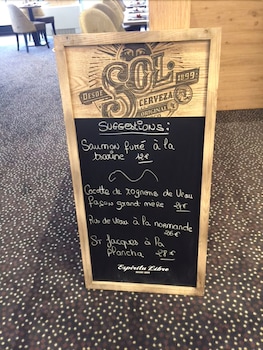 SOL
DESDE 1899
CERVEZA
ORIGINAL
SUGGESTIONS :
Saumon fumé à la
12€
Cocotte de rognons de veau
façon grand-mère
Ris de veau à la normande
26€
St Jacques à la
Plancha 28€
Espíritu Libre